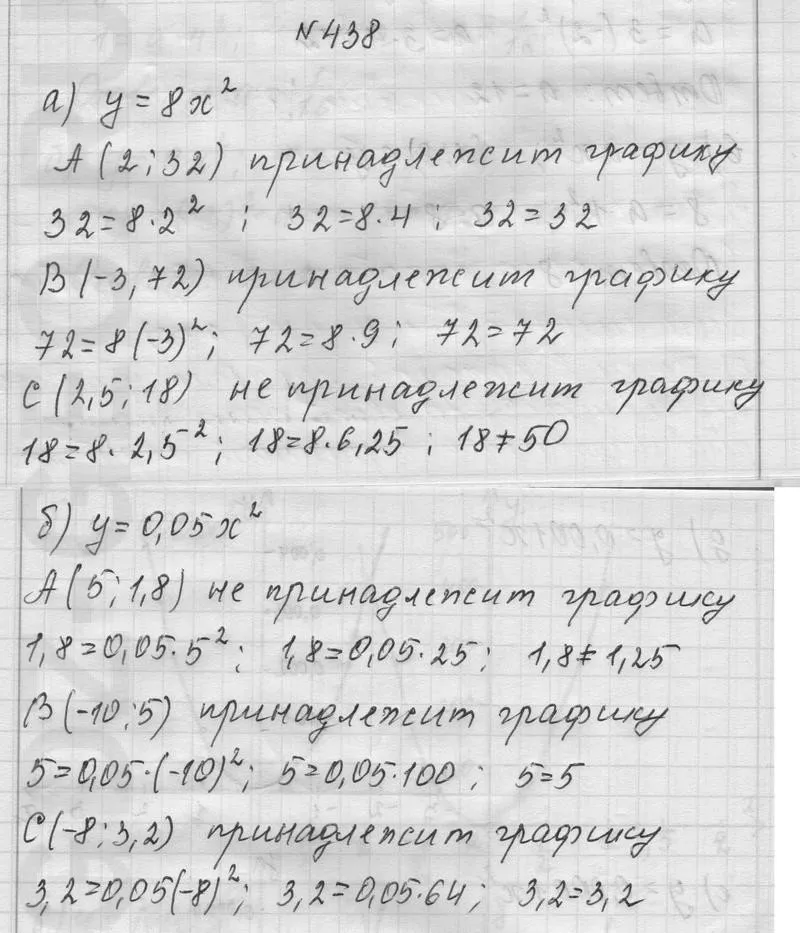 N438
а) y = 8x²
A(2;32) принадлежит графику
32=8·2² ; 32=8·4 ; 32=32
B(-3,72) принадлежит графику
72=8(-3)²; 72=8·9; 72=72
C(2,5;18) не принадлежит графику
18=8·2,5²; 18=8·6,25 ; 18≠50
б) y=0,05x²
A(5;1,8) не принадлежит графику
1,8=0,05·5²; 1,8=0,05·25; 1,8≠1,25
B(-10;5) принадлежит графику
5=0,05·(-10)²; 5=0,05·100 ; 5=5
C(-8;3,2) принадлежит графику
3,2=0,05(-8)²; 3,2=0,05·64; 3,2=3,2